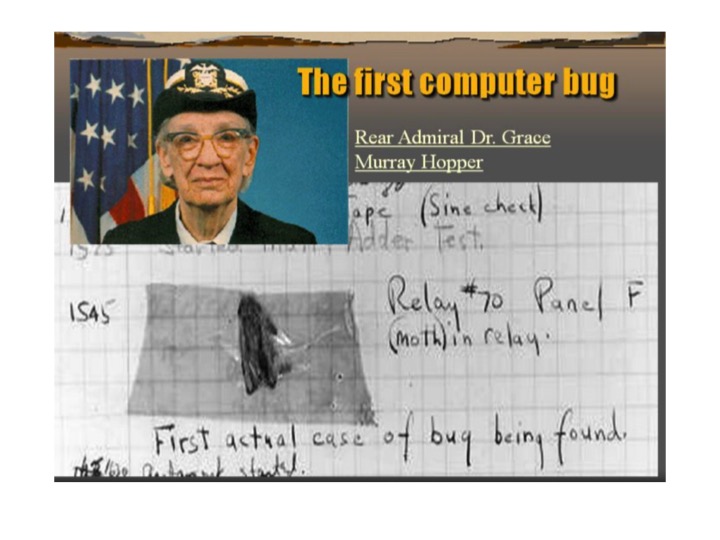 The first computer bug
Rear Admiral Dr. Grace
Murray Hopper
Tape (Sine check)
1525 Started Multi Adder Test.
1545 Relay #70 Panel F
(moth) in relay.
First actual case of bug being found.
started.